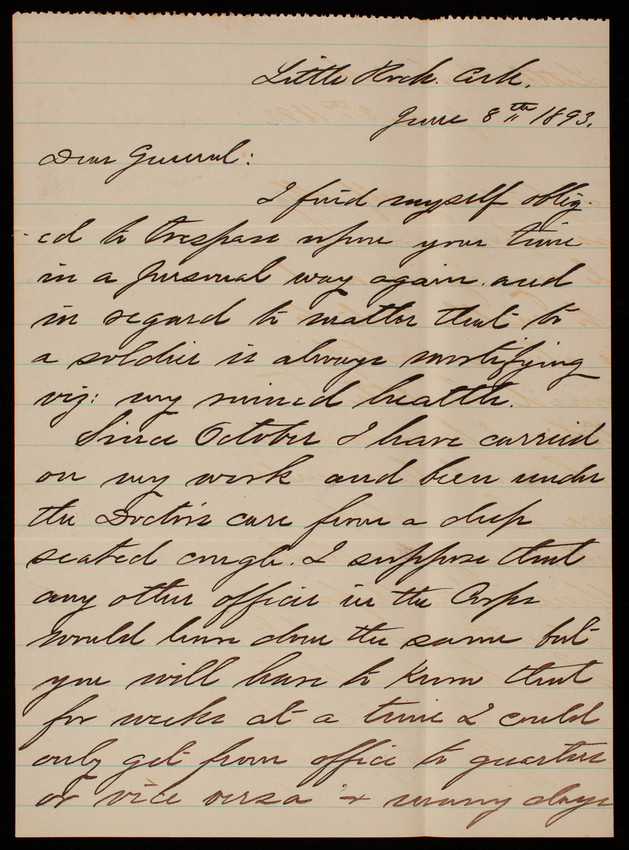 Little Rock. Ark.
June 8th 1893.
Dear General:
I find myself oblig-
-ed to trespass upon your time
in a personal way again. and
in regard to matter that to
a soldier is always mortifying
viz: my ruined health.
Since October I have carried
on my work and been under
the Doctor's care from a deep
seated cough. I suppose that
any other officer in the Corps
would have done the same but
you will have to know that
for weeks at a time I could
only get from office to quarters
or vice versa & many days